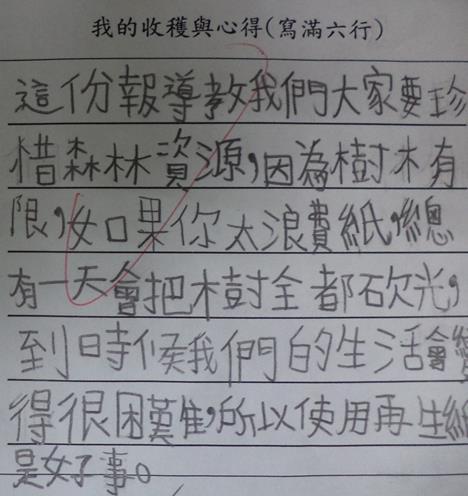 我的收穫與心得(寫滿六行)
這份報導教我們大家要珍
惜森林資源，因為樹木有
限，如果你太浪費紙，總
有一天會把樹全都砍光，
到時候我們的生活會變
得很困難，所以使用再生紙
是好事。